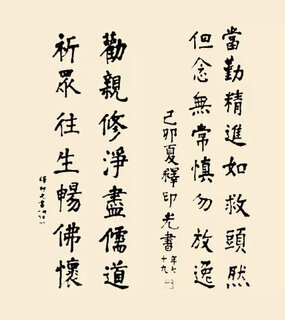 當勤精進如救頭然
但念無常慎勿放逸
己卯夏釋印光書
年七十九
勸親修淨盡儒道
祈眾往生暢佛懷